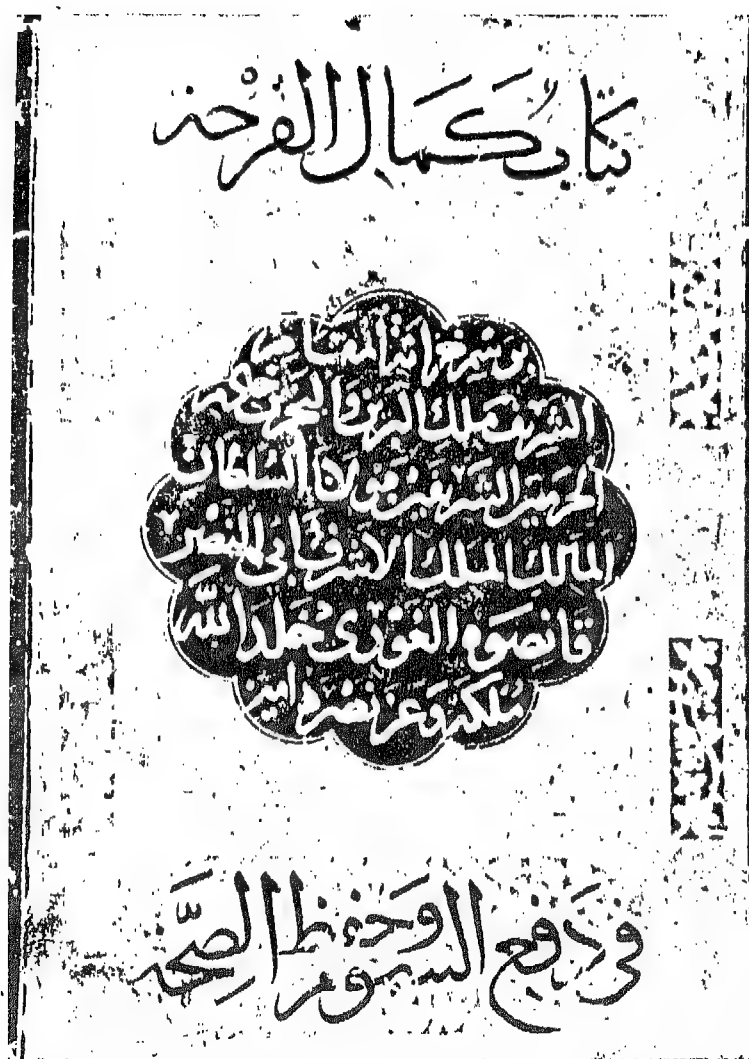 كتاب كمال الفرحة
برسم خزانة المقام
الشريف ملك البرين والبحرين خادم
الحرمين الشريفين مولانا السلطان
المالك الملك الأشرف أبي النصر
قانصوه الغوري خلد الله
ملكه وعز نصره امين
في دفع السموم وحفظ الصحة